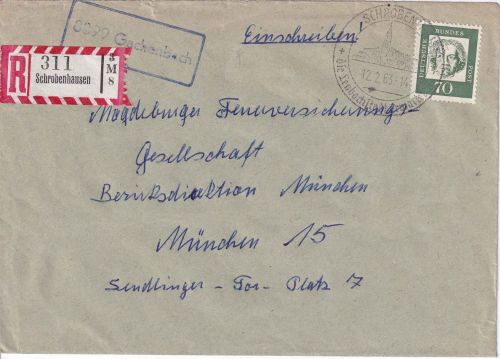 8899 Gachenbach
Einschreiben!
SCHROBEN
12.2.63-14
die Lenbachstadt
DEUTSCHE
BUNDES
POST
70
R
311
Schrobenhausen
3
M
8
Magdeburger Feuerversicherungs-
Gesellschaft
Bezirksdirektion München
München 15
Sendlinger-Tor-Platz 7